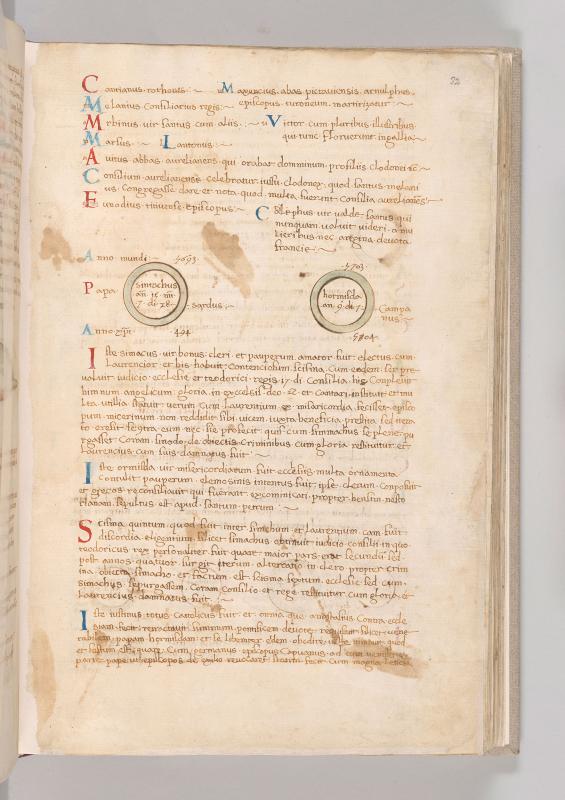 22
Canrianus. rothonus :~ Maxencius. abas pictauiensis. arnulphes.
Melanius. Consiliarius regis :~ episcopus. turoneum. martirizatur :~
Mrbinus. vir santus cum aliis :~ Victor cum pluribus. illustribus.
Marsus :~ Lantonus :~ qui tunc floruerunt. in gallia :~
Auitus. abbas. aurelianens. qui orabat dominum. pro filiis clodonei
Consilium. aurelianense celebratur. iussu. clodonex. quod. santus. melani
us. Congregasse dare et nota. quod. multa. fuerunt. Consilia aurelianes
Euodius. tinuense. episcopus :~ Cblephus. vir valde. santus. qui
nunquam. voluit videri. a mu
lieribus. nec a regina. deuota.
francie :~
Anno mundi 5693 5703
Papa simachus an. 15. m. 7. di. 28 sardus :~ hormisda an. 9. di. 7 Campa
nus :~
Anno xpi 494 504
Iste simacus. vir bonus. cleri. et pauperum. amator fuit. electus. cum
Laurencio. et bis. habuit. Contencionem. scisma. Cum eodem. set pre
ualuit iudicio. ecclesie et teodorici. regis. 17. di. Consilia. hic Compleuit
himnum angelicum. gloria. in excelsis. deo. et cantari. instituit et mu
lta. utilia statuit verum Cum laurencium. ex. misericordia. fecisset. episco
pum. nucerinum. non reddidit sibi. vicem. iuxta beneficia. prestita. sed
Laurencius. cum suis. damnatus. fuit :~
Iste ormisda. vir misericordiarum. fuit ecclesiis. multa. ornamenta
Contulit pauperum. elemosinis. intentus fuit. ipse. clerum. Composuit
et grecos. reconsiliauit qui fuerant. excomunicati. propter. heresim. nesto
rianam. sepultus. est. apud. santum. petrum :~
Scisma. quintum. quod. fuit. inter simachum. et laurencium. cam fuit
discordia. eligentium. scilicet simachus. obtinuit iudicio. consilii. in quo.
teodoricus. rex. personaliter fuit quare. maior pars. erat secundum. sed
post annos. quatuor. surgit iterum. altercatio. in clero. propter crim
ina. obiecta. simacho. et factum. est. scisma. sextum. ecclesie. sed. cum.
simachus. se purgasset. Coram. Consilio. et rege. restituitur. cum gloria. et
Laurencius. damnatus. fuit :~
Iste iustinus. totus. Catholicus fuit. et omnia. que. anastasius. Contra eccle
siam. fecit. retractauit summum. pontificem. deuote
rabilem. papam. hormisdam. et se libenter. eidem. obedire
Cum. germanus. episcopus Capuanus. ad eum
parte. pape. ut episcopos. de exilio reuocaret. fecit. Cum magna. leticia